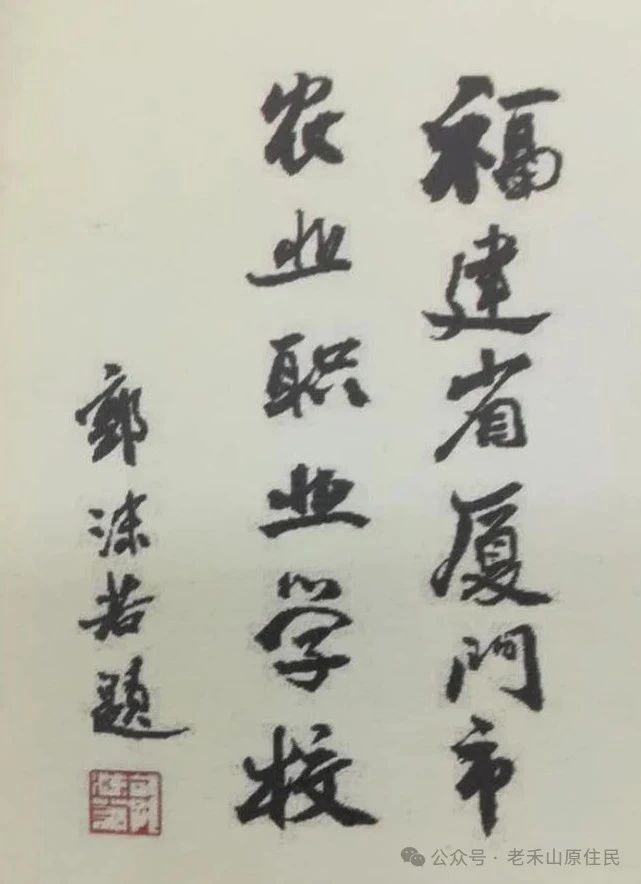 福建省厦门市
农业职业学校
郭沫若题
公众号·老禾山原住民